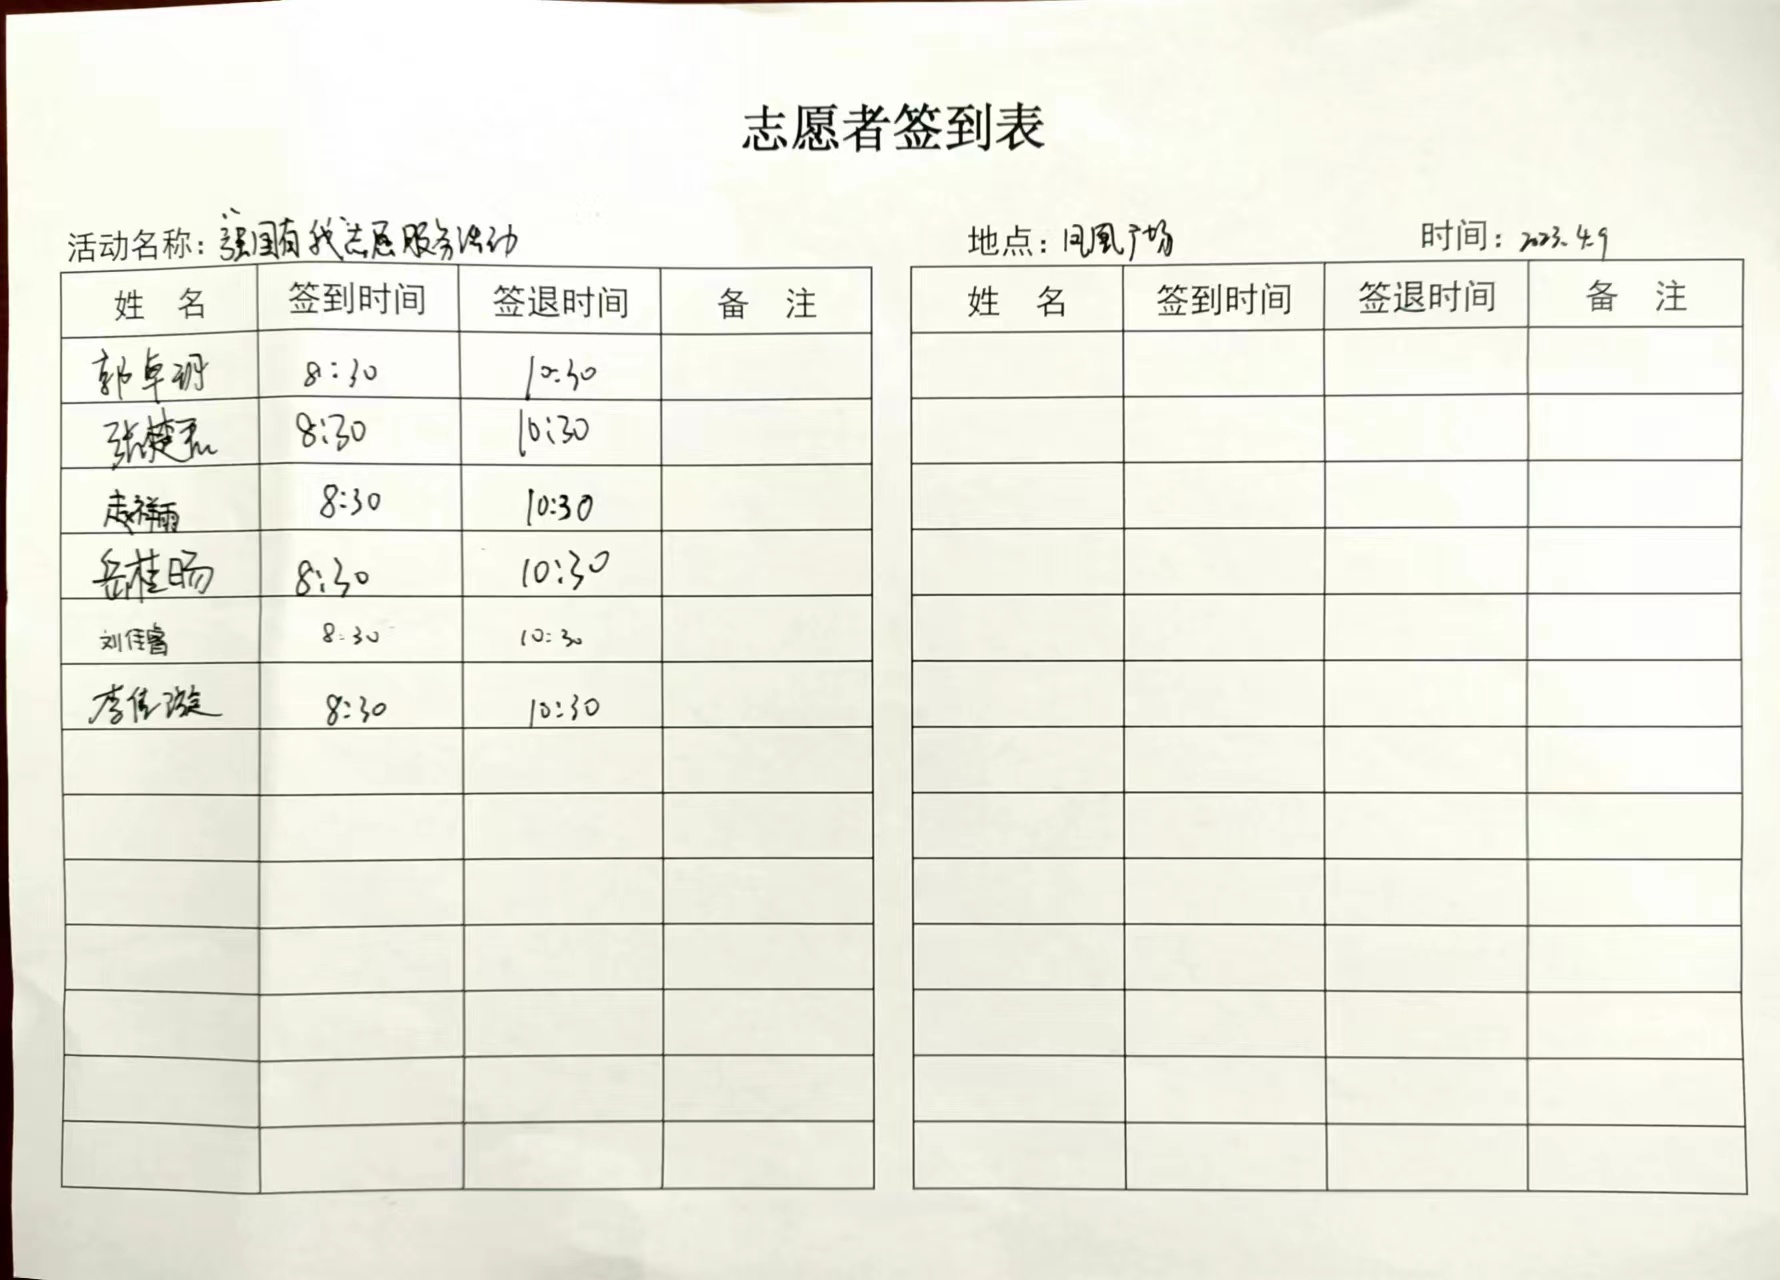 志愿者签到表
活动名称：强国有我志愿服务活动 地点：凤凰广场 时间：2023.4.9
姓 名 签到时间 签退时间 备 注 姓 名 签到时间 签退时间 备 注
郭卓玥 8:30 10:30
张楚 8:30 10:30
赵祥雨 8:30 10:30
岳桂旸 8:30 10:30
刘佳睿 8:30 10:30
李佳璇 8:30 10:30